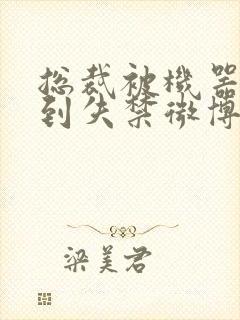 总裁被機器
到失禁微博
梁美君